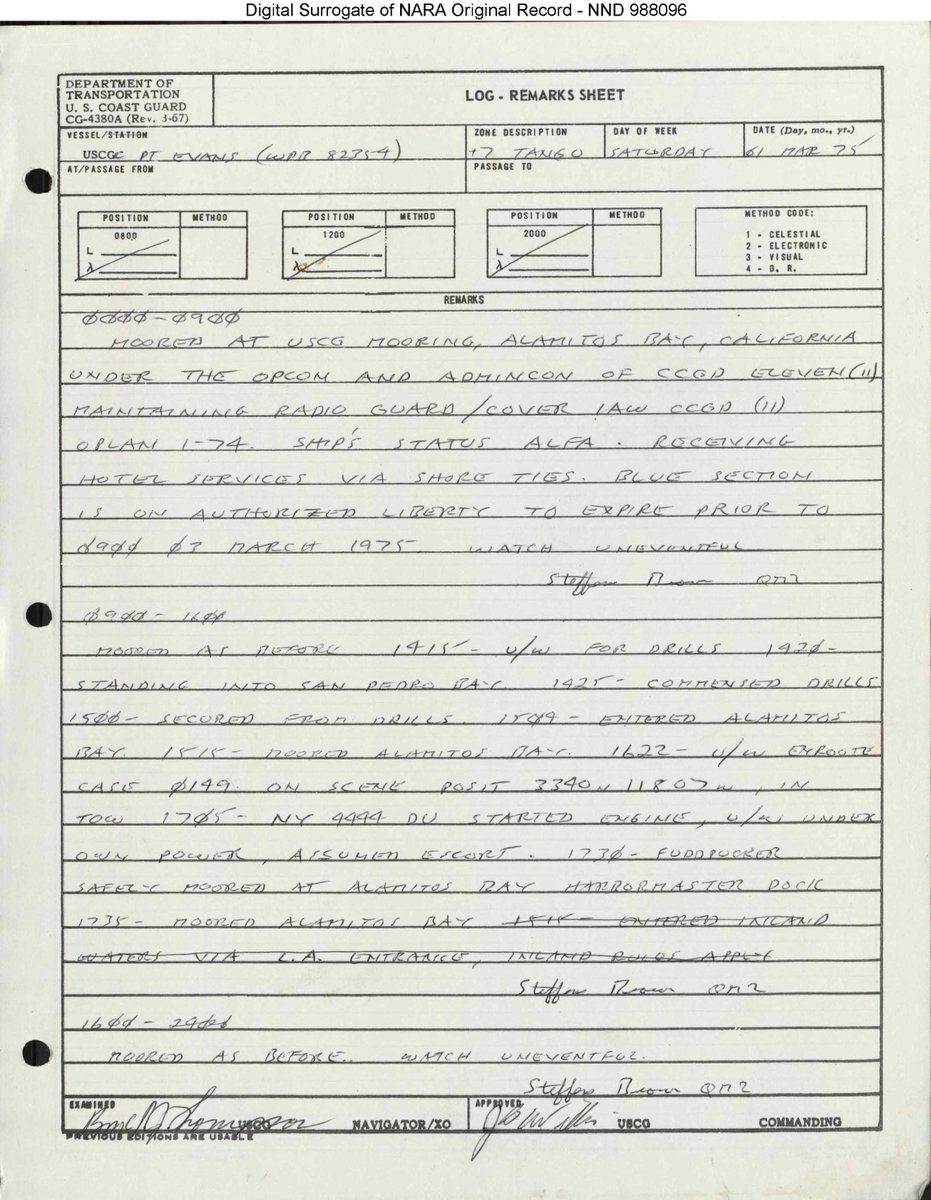 Digital Surrogate of NARA Original Record - NND 988096
DEPARTMENT OF
TRANSPORTATION
U. S. COAST GUARD
CG-4380A (Rev. 3-67)
LOG - REMARKS SHEET
VESSEL/STATION
USCGC PT EVANS (WPB 82354)
ZONE DESCRIPTION
+7 TANGO
DAY OF WEEK
SATURDAY
DATE (Day, mo., yr.)
01 MAR 75
AT/PASSAGE FROM
PASSAGE TO
POSITION METHOD
0800
L
λ
POSITION METHOD
1200
L
λ
POSITION METHOD
2000
L
λ
METHOD CODE:
1 - CELESTIAL
2 - ELECTRONIC
3 - VISUAL
4 - D. R.
REMARKS
0000-0900
MOORED AT USCG MOORING, ALAMITOS BAY, CALIFORNIA
UNDER THE OPCON AND ADMINCON OF CCGD ELEVEN (11)
MAINTAINING RADIO GUARD/COVER IAW CCGD (11)
OPLAN 1-74. SHIP'S STATUS ALFA. RECEIVING
HOTEL SERVICES VIA SHORE TIES. BLUE SECTION
IS ON AUTHORIZED LIBERTY TO EXPIRE PRIOR TO
0900 03 MARCH 1975. WATCH UNEVENTFUL
Steffens Brown QM2
0900 - 1600
MOORED AS BEFORE 1415 - U/W FOR DRILLS 1420 -
STANDING INTO SAN PEDRO BAY. 1425 - COMMENSED DRILLS
1500 - SECURED FROM DRILLS. 1509 - ENTERED ALAMITOS
BAY. 1515 - MOORED ALAMITOS BAY. 1622 - U/W ENROUTE
CASE 0149. ON SCENE POSIT 3340N 11807W, IN
TOW 1705 - NY 4444 DU STARTED ENGINE, U/W UNDER
OWN POWER, ASSUMED ESCORT. 1730 - FUDDPUCKER
SAFELY MOORED AT ALAMITOS BAY HARBORMASTER DOCK
1735 - MOORED ALAMITOS BAY 1515 - ENTERED INLAND
WATERS VIA L.A. ENTRANCE, INLAND RULES APPLY
Steffens Brown QM2
1600 - 2400
MOORED AS BEFORE. WATCH UNEVENTFUL.
Steffens Brown QM2
EXAMINED
USCG NAVIGATOR/XO
APPROVED
USCG COMMANDING
PREVIOUS EDITIONS ARE USABLE